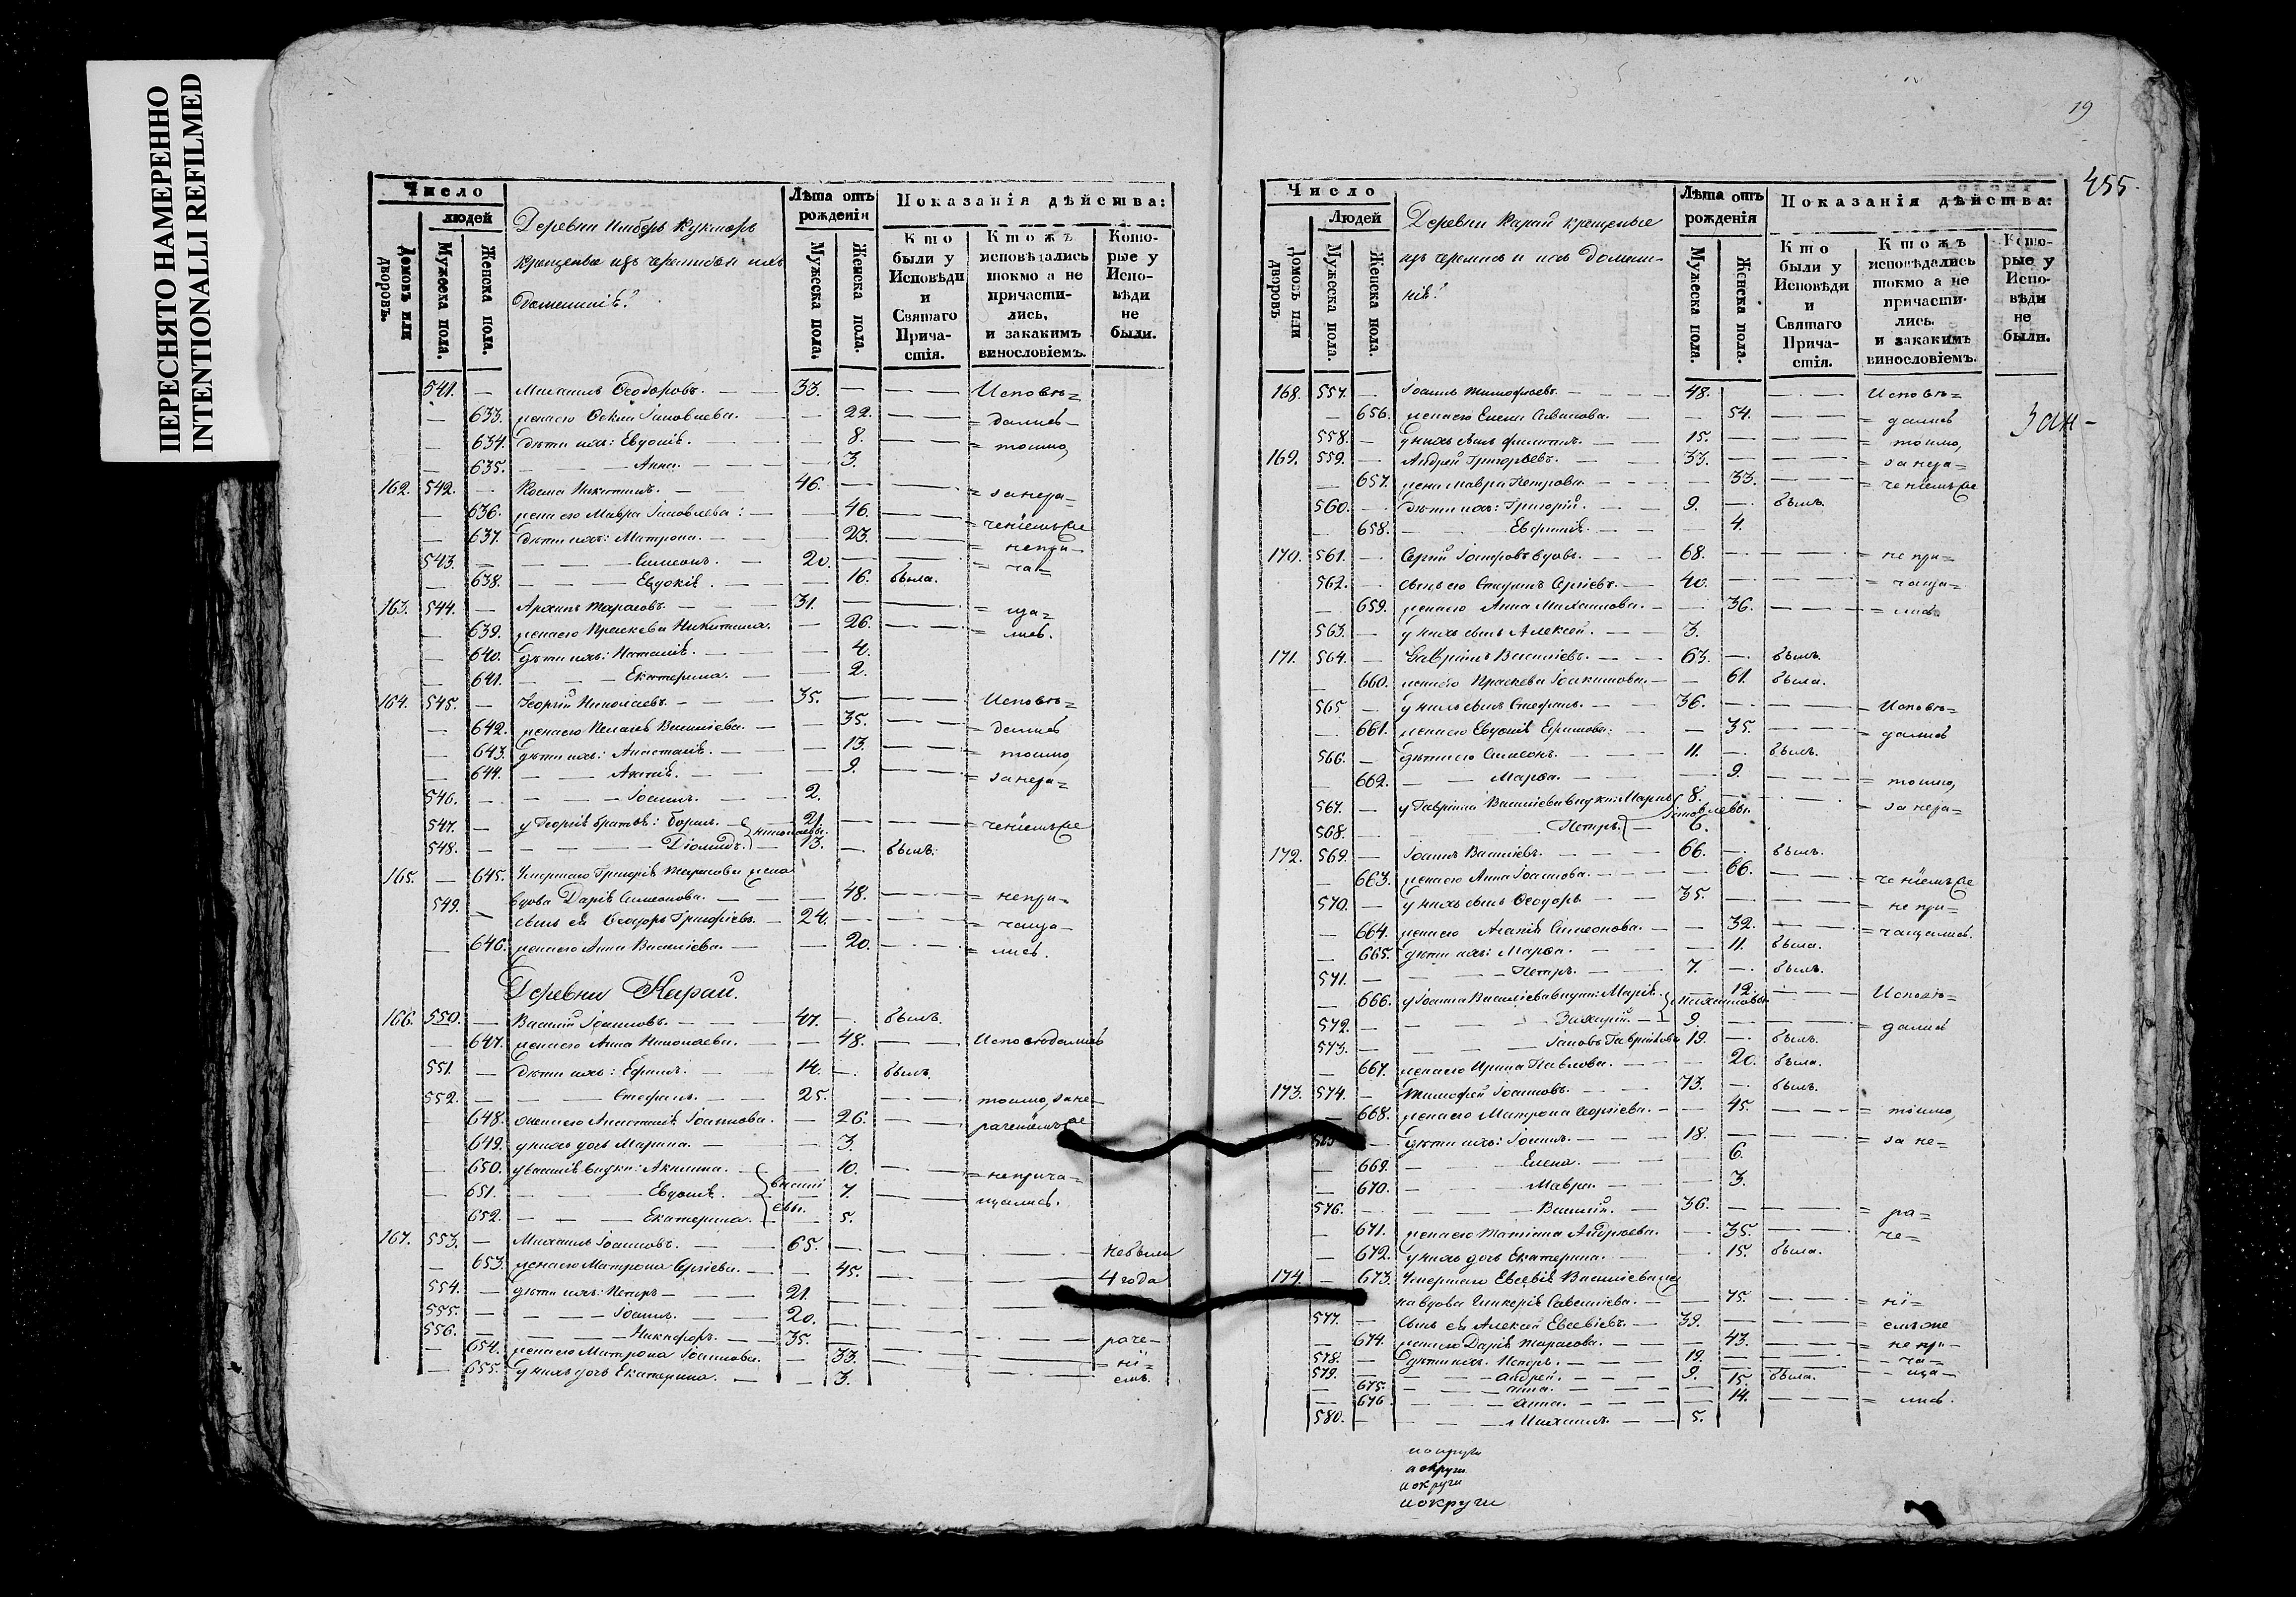 ПЕРЕСНЯТО НАМЕРЕННО
INTENTIONALLI REFILMED
Число
людей
Домовъ или дворовъ.
Мужеска пола.
Женска пола.
Деревни Имберь Кукморъ
крещеные изъ черемисъ и ихъ
домашнiе
Лѣта отъ рожденiя
Мужеска пола.
Женска пола.
Показанiя дѣйства:
Кто были у Исповѣди и Святаго Прича-стiя.
Ктожъ исповѣдались токмо а не причасти-лись, и закакимъ винословiемъ.
Кото-рые у Испо-вѣди не были.
541. — Михаилъ Ѳеодоровъ. 33. Исповѣ=
— 633. жена его Iаковлева. 22. = дались
— 634. дѣти ихъ: Евдокiя. 8. = токмо,
— 635. Анна. 3.
162. 542. — Косма Никитинъ. 46. = занера=
— 636. жена его Мавра Iаковлева: 46. = ченiемъ
— 637. дѣти ихъ: Матрона. 23. = непри=
543. — Симеонъ. 20. = ча=
— 638. Евдокiя. 16. была.
163. 544. — Архипъ Тарасовъ. 31. = ща=
— 639. жена его Праскева Никитина. 26. = лись.
— 640. дѣти ихъ: Наталiя. 4.
— 641. Екатерина. 2.
164. 545. — Георгiй Николаевъ. 35. Исповѣ=
— 642. жена его Пелагiя Василiева. 35. = дались
— 643. дѣти ихъ: Анастасiя. 13. = токмо,
— 644. 9. = занера=
546. — Iоаннъ. 2.
547. — у Георгiя братья: Борисъ. Николаевы. 21. = ченiемъ
548. — Дiомидъ. 13. былъ.
165. — 645. Умершаго Григорiя Тарасова жена
вдова Дарiя Симеонова. 48. = непри=
549. — сынъ ея Ѳеодоръ Григорiевъ. 24. = чаща=
— 646. жена его Анна Василiева. 20. = лись.
Деревни Карай.
166. 550. — Василiй Iоанновъ. 47. былъ.
— 647. жена его Анна Николаева. 48. Исповѣдались
551. — дѣти ихъ: Ефремъ. 14. былъ.
552. — Стефанъ. 25. токмо, зане=
— 648. жена его Анастасiя Iоаннова. 26. раченiемъ
— 649. у нихъ дочь Марина. 3.
— 650. у Василiя внуки: Акилина. 10. = неприча=
— 651. Евдокiя. Василiевы. 7. щались.
— 652. Екатерина. 5.
167. 553. — Михаилъ Iоанновъ. 65. небыли
— 653. жена его Матрона Сергiева. 45. 4 года
554. — дѣти ихъ: Петръ 21.
555. — Iоаннъ. 20.
556. — Никифоръ. 35. раче=
— 654. жена его Матрона Iоаннова. 33. = нi=
— 655. у нихъ дочь Екатерина. 3. емъ.
19
455.
Число
Людей
Домовъ или дворовъ
Мужеска пола.
Женска пола.
Деревни Карай крещеные
изъ черемисъ и ихъ домаш=
нiе
Лѣта отъ рожденiя
Мужеска пола.
Женска пола.
Показанiя дѣйства:
Кто были у Исповѣди и Святаго Прича-стiя.
Ктожъ исповѣдались токмо а не причасти-лись, и закакимъ винословiемъ.
Кото-рые у Испо-вѣди не были.
168. 557. — Iоаннъ Тимофеевъ. 48. Исповѣ=
— 656. жена его Елена Савинова. 54. = дались
558. — у нихъ сынъ Филиппъ. 15. = токмо,
169. 559. — Андрей Григорьевъ. 33. = занера=
— 657. жена Мавра Петрова. 33. = ченiемъ
560. — дѣти ихъ: Григорiй. 9. былъ.
— 658. 4.
170. 561. — Сергiй вдовъ. 68. = не при=
562. — сынъ его Сергiевъ. 40. = чаща=
— 659. жена его Анна Михаилова. 36. = лись.
563. — у нихъ сынъ Алексей. 3.
171. 564. — Гаврiилъ Василiевъ. 63. былъ.
— 660. жена его Праскева Iоакимова. 61. была.
565 — у нихъ сынъ Стефанъ. 36. = Исповѣ=
— 661. жена его Евдокiя Ефимова. 35. = дались
566. — дѣти его Симеонъ. 11. былъ.
— 662. Марѳа. 9. = токмо,
567. — у Гаврiила Василiева внуки: 8. = занера=
568. — Петръ. 6.
172. 569. — Iоаннъ Василiевъ. 66. былъ.
— 663. жена его Анна Iоаннова. 66. = ченiемъ
570. — у нихъ сынъ Ѳеодоръ 35. = не при=
— 664. жена его Агапiя Симеонова. 32. = чащались.
— 665. дѣти ихъ: Марѳа. 11. была.
571. — Петръ. 7. былъ.
— 666. у Iоанна Василiева внуки: Марiя. Михаиловы. 12. Исповѣ=
572. — Захарiй. 9. = дались
573. — Iаковъ Гаврiиловъ 19. былъ.
— 667. жена его Ирина Павлова. 20. была.
173. 574. — Тимофей Iоанновъ. 73. былъ.
— 668. жена его Матрона Георгiева. 45. = токмо,
575 — дѣти ихъ: Iоаннъ. 18. = за не=
— 669. Елена. 6.
— 670. Мавра. 3.
576. — Василiй. 36. = ра=
— 671. жена его Татiана Андреева. 35. = че=
— 672. у нихъ дочь Екатерина. 15. была.
174. — 673. Умершаго Евсевiя Василiева же
на вдова Гликерiя Савелiева. 75. = нi=
577. — сынъ ея Алексей Евсевiевъ. 39. = емъ же
— 674. жена его Дарiя Тарасова. 43. = не при=
578. — дѣти ихъ. Петръ. 19. = ча=
579. — Андрей. 9. = ща=
— 675. Анна. 15. была.
— 676 Анна. 14. = лись.
580. — Михаилъ. 5.
Зан-
иокруги
иокруги
иокруги
иокруги